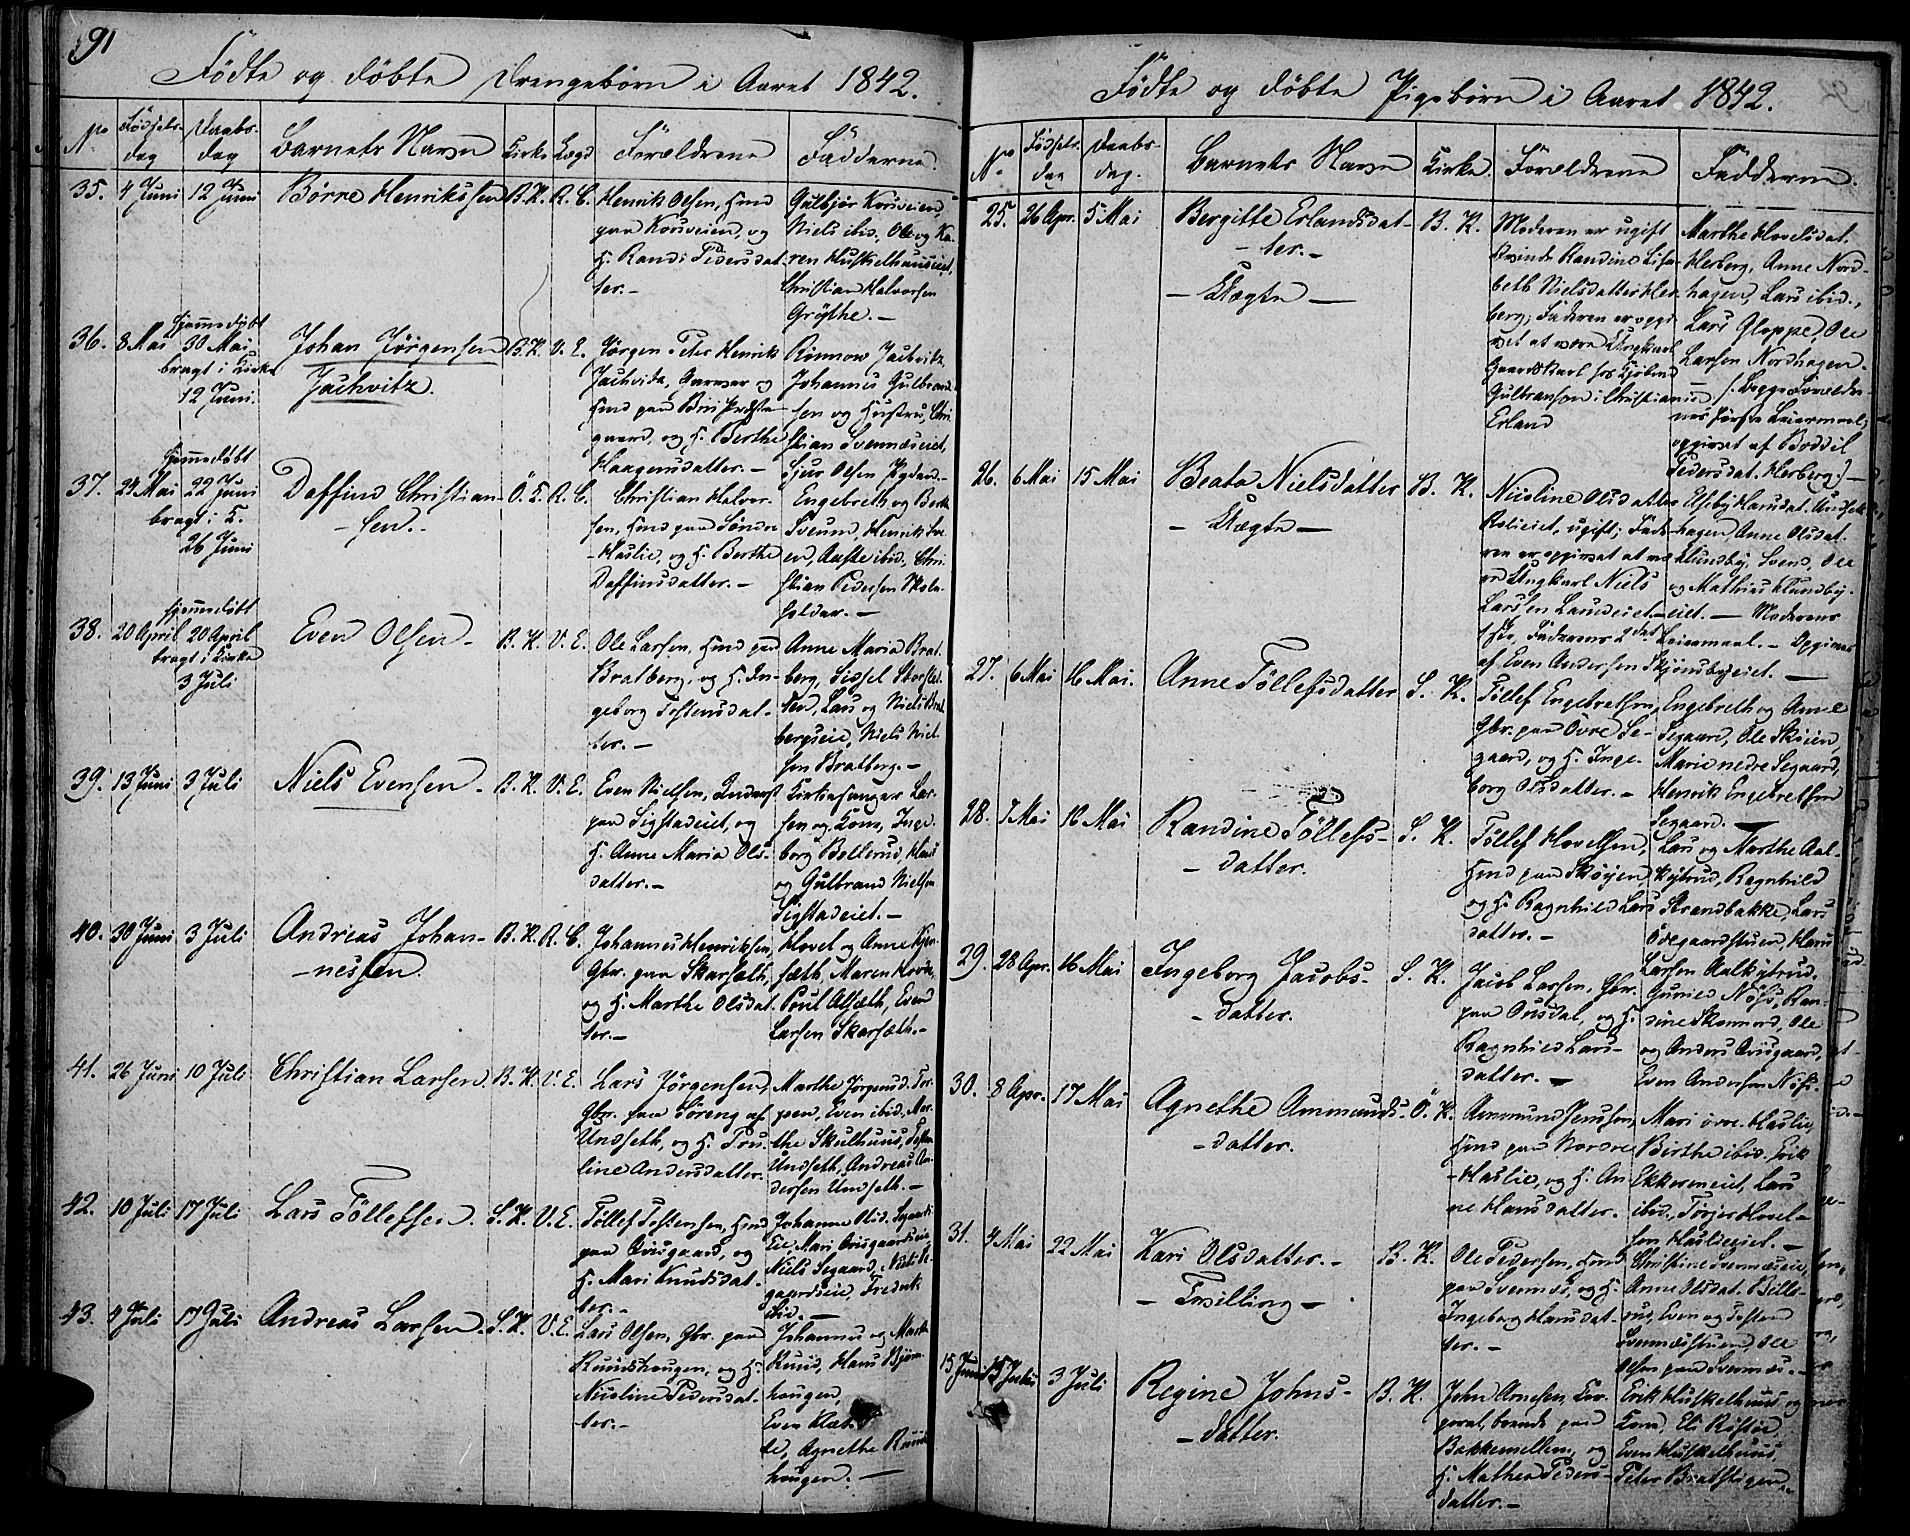 91
Födte og döbte Drengebörn i Aaret 1842.
No Födsels- dag Daabs- dag Barnets Navn Kirke Lægd Forældrene Fadderne.
35. 4 Juni 12 Juni Börre Henrikssen B. K. R. C.
Henrik Olsen, Hmd
paa Korsveien, og
H. Randi Pedersdat-
ter.-
Gulbjör Korsveien,
Niels ibid., Ole og Ka-
ren Huskelhuuseiet,
Christian Halvorsen
Gröthe.-
36. 8 Mai hjemmedöbt
30 Mai.
bragt i Kirke
12 Juni.
Johan Jörgensen
Jachvitz.
B. K. V. E.
Jörgen Peter Henrik
og
Hmd paa Biri Præste-
gaard, og H. Berthe
Haagensdatter.-
Rönnow Jachvitz,
Johannes Gulbrand-
sen og Hustru, Chri-
stian Svennæseiet,
Sjur Olsen
37. 24 Mai hjemmedöbt
22 Juni
bragt i K.
26 Juni
Daffind Christian-
-sen.-
Ö. K. R. C.
Christian Halvor-
sen, Hmd paa Söndre
-Haslie, og H. Berthe
Daffinsdatter.-
Engebreth og Berthe
Sveum, Henrik
ibid., Chri-
stian Pedersen Skole-
holder.-
38. 20 April hjemmedöbt
20 April
bragt i Kirke
3 Juli
Even Olsen- B. K. V. E.
Ole Larsen, Hmd paa
Bratberg, og H. In-
geborg Tostensdat-
ter.-
Anne Maria Brat-
berg, Sissel Storslet-
ten, Lars og Niels Brat-
bergseie, Niels Niel-
sen Bratberg.-
39. 13 Juni 3 Juli Niels Evensen- B. K. V. E.
Even Nielsen, Inderst
paa Sigstadeiet, og
H. Anne Maria Ols-
datter.-
Kirkesanger Lar-
sen og Kone, Inge-
borg Bollerud, Hans
og Gulbrand Nielsen
Sigstadeiet.-
40. 30 Juni 3 Juli Andreas Johan-
-nessen.
B. K. R. C.
Johannes Henriksen,
Gbr. paa Skarseth,
og H. Marthe Olsdat-
ter.-
Hovel og Anne
Maren
Poul Alseth, Even
Larsen Skarseth.-
41. 26 Juni 10 Juli Christian Larsen. B. K. V. E.
Lars Jörgensen,
Gbr. paa Söreng af
Undseth, og H. Pau-
line Andersdatter.
Marthe Jörgensd. Tor-
pen, Even ibid., Mar-
the Skulhuus,
Undseth, Andreas An-
dersen Undseth.-
42. 10 Juli 17 Juli Lars Töllefsen. S. K. V. E.
Töllef Tostensen, Hmd
paa Ovisgaard, og
H. Mari Knudsdat-
ter.-
Johanne Olsd. Segaards-
Eie, Mari Ovisgaardseie,
Niels Segaard, Se-
gaardseie, Frederik
ibid.-
43. 4 Juli 17 Juli Andreas Larsen. S. K. V. E.
Lars Olsen, Gbr. paa
Ruudshaugen, og H.
Nicoline Pedersdat-
ter.-
Johannes og Marthe
Ruud, Hans Björn-
haugen,
Even
Agnethe Ruuds-
haugen.-
Födte og döbte Pigebörn i Aaret 1842.
No Födsels- dag Daabs- dag. Barnets Navn Kirke. Forældrene Fadderne.
25. 26 Apr. 5 Mai Bergitte Erlandsdat-
-ter.-
-Uægte-
B. K.
Moderen er ugift
Qvinde Randine Lisa-
beth Nielsdatter Her-
berg; Faderen er opgi-
vet at være Ungkarl
Gaardskarl hos Kjöbmd
Gulbransen i Christiania
Erland
Marthe Hovelsdat.
Herberg, Anne Nord-
hagen, Lars ibid.,
Lars Gloppe, Ole
Larsen Nordhagen.
- /: Begge Forældre-
nes förste Leiermaal;
opgivet af Boddil
Pedersdat. Herberg:/-
26. 6 Mai 15 Mai Beata Nielsdatter
-Uægte-
B. K.
Nicoline Olsdatter
ugift; Fade-
ren er opgivet at væ-
re Ungkarl Niels
Larsen
1ste, Faderens 2det Leiermaal.- Opgivet
af Even Andersen Skjönsbyeiet.-
Elseby Hansdat.
hagen, Anne Olsdat.
Hundby, Svend, Ole
og Mathias Hundby-
eiet.- Moderens
27. 6 Mai 16 Mai. Anne Töllefsdatter S. K.
Töllef Engebretsen,
Gbr. paa Övre Se-
gaard, og H. Inge-
borg Olsdatter.-
Engebreth og Anne
Segaard, Ole Sköien,
Marie nedre Segaard,
Henrik Engebretsen
Segaard.-
28. 7 Mai 16 Mai Randine Töllefs-
-datter.
S. K.
Töllef Hovelsen,
Hmd paa Sköyen
og H. Ragnhild Lars-
datter.-
Lars og Marthe Aal-
Ragnhild
Strandbakke, Lars
Ödegaardstuen, Hans
Larsen
29. 28 Apr. 16 Mai Ingeborg Jacobs-
-datter.
S. K.
Jacob Larsen, Gbr.
paa Onsdal, og H.
Ragnhild Lars-
datter.-
Gunild Nöss, Ran-
dine Skomrud, Ole
og Anders Ovisgaard,
Even Andersen Nöss.
30. 8 Apr. 17 Mai Agnethe Ammunds-
-datter.
Ö. K.
Ammund Jenssen,
Hmd paa Nordre
-Haslie, og H. An-
ne Hansdatter.
Mari övre Haslie,
Birthe ibid. Erik
Ekkerneiet, Lars
ibid., Torjer Hovel-
sen Haslieeiet.-
31. 4 Mai 22 Mai Kari Olsdatter.-
-Tvilling-
B. K.
Ole Pedersen, Hmd
paa Svennæs, og H.
Ingeborg Hansdat-
ter.-
Christine Svennæseie,
Anne Olsdat. Bille-
rud, Even og Tosten
Svennæsstuen, Ole
Olsen paa Svennæs.-
15 Juni 3 Juli Regine Johns-
-datter.
B. K.
John Arnesen, Cor-
poral, boende paa
Bakkemellem, og
H. Mathea Peders-
datter.-
Erik Huskelhuus og
Kone, Eli Röstöe,
Even Huskelhuus,
Peter Bratstigen.-